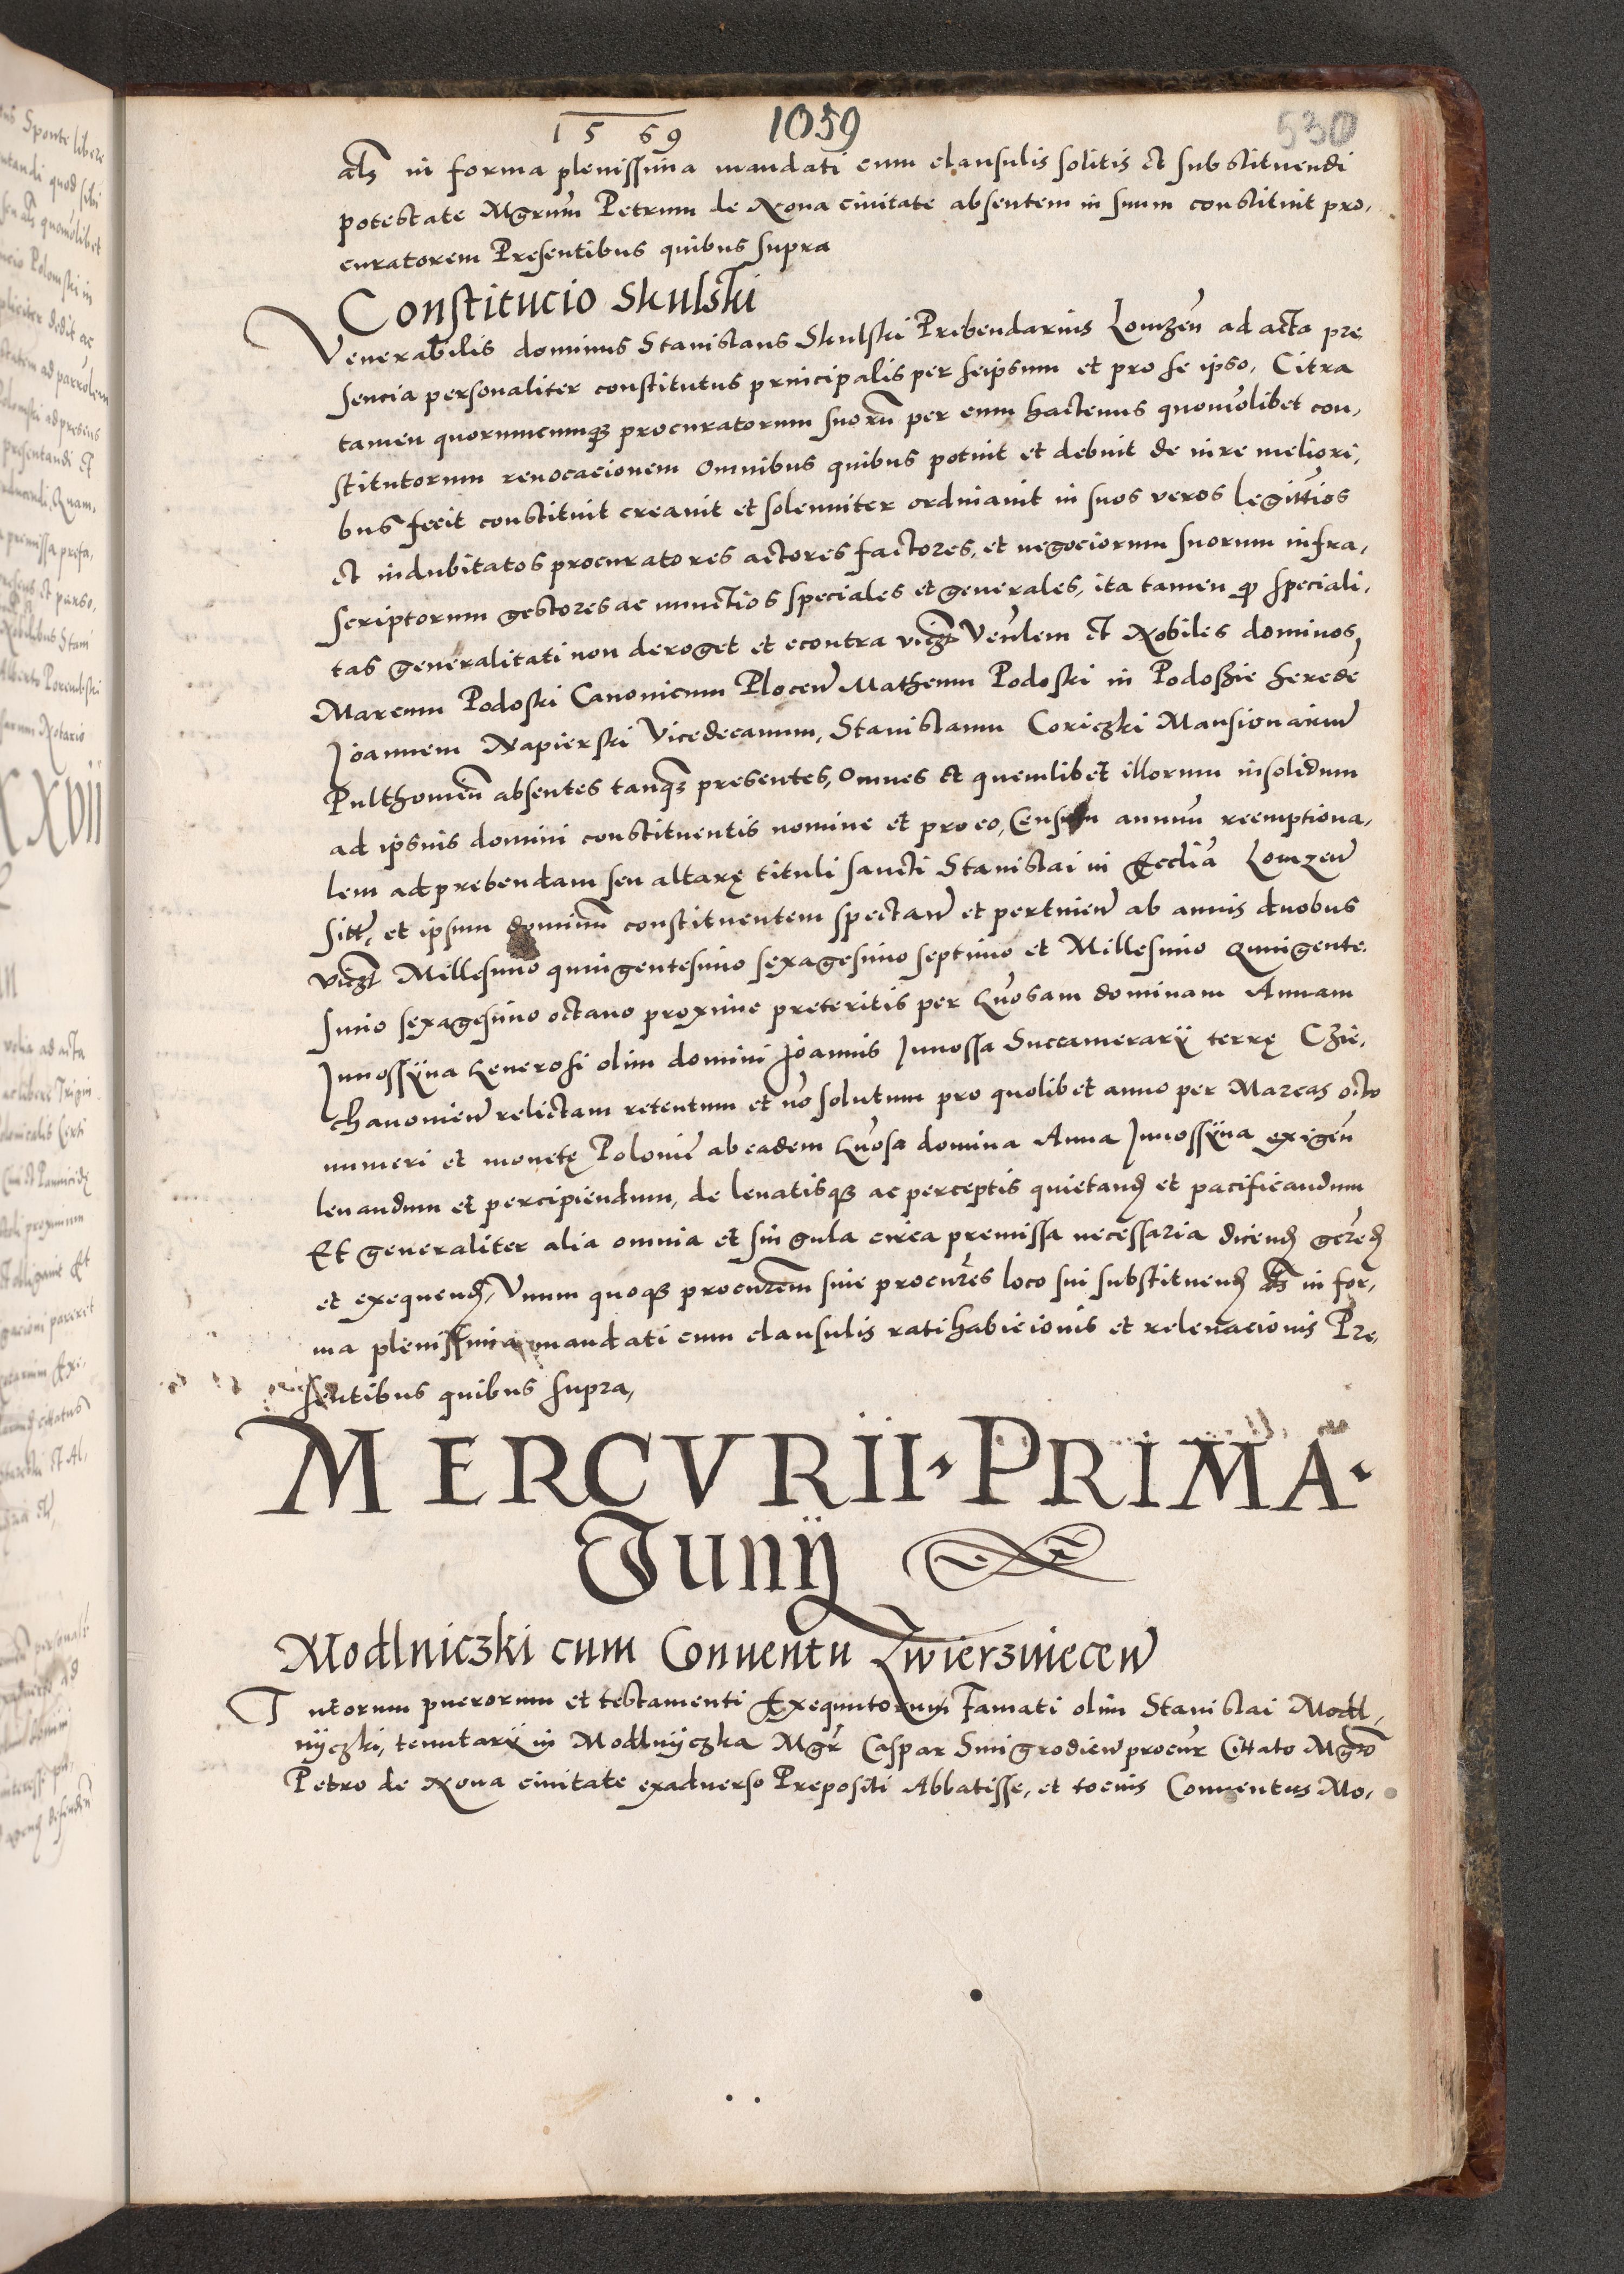 1569 1059 530
als in forma plenissima mandati cum clausulis solitis et substituendi
potestate Mgrum Petrum de Nova civitate absentem in suum constituit pro,
curatorem Presentibus quibus supra
Constitucio Skulski
Venerabilis dominus Stanislaus Skulski Prebendarius Lomzen ad acta pre,
sencia personaliter constitutus principalis per seipsum et pro se ipso, Citra
tamen quorumcumq procuratorum suoru per eum hactenus quomolibet con,
stitutorum revocacionem Omnibus quibus potuit et debuit de iure meliori,
bus fecit constituit creavit et solenniter ordinavit in suos veros legittios
et indubitatos procuratores actores factores, et negociorum suorum infra,
scriptorum gestores ac nunctios speciales et generales, ita tamen q speciali,
tas generalitati non deroget et econtra vicz Venlem et Nobiles dominos
Marcum Podoski Canonicum Plocen Matheum Podoski in Podoszie herede
Joannem Napierski Vicedecanum, Stanislaum Coriczki Mansionarium
Pulthovien absentes tanq presentes, Omnes et quemlibet illorum insolidum
ad ipsius domini constituentis nomine et pro eo, Censum annuu reemptiona,
lem ad prebendam seu altare tituli sancti Stanislai in Ecclia Lomzen
sitt, et ipsum dominum constituentem spectan et pertinen ab annis duobus
vicz Millesimo quingentesimo sexagesimo septimo et Millesimo quingente,
simo sexagesimo octavo proxime preteritis per Gnosam dominam Annam
Junossÿna Generosi olim domini Joannis Junossa Succamerarÿ terrę Czie,
chanovien relictam retentum et no solutum pro quolibet anno per Marcas octo
numeri et monetę Polonie ab eadem Gnosa domina Anna Junossÿna exigen
levandum et percipiendum, de levatisq ac perceptis quietand et pacificandum
Et generaliter alia omnia et singula circa premissa necessaria dicend gerend
et exequend, Unum quoq procurem sive procures loco sui substituend als in for,
ma plenissima mandati cum clausulis ratihabicionis et relevacionis Pre,
sentibus quibus supra,
MERCVRII · PRIMA ·
Junÿ
Modlniczki cum Conventu Zwierzinecen
Tutorum puerorum et testamenti Exequutorum Famati olim Stanislai Modl,
nÿczki, tenutarÿ in Modlnÿczka Mgr Caspar Smigrodien procur Cittato Mgro
Petro de Nova civitate exadverso Prepositi Abbatisse, et tocius Conventus Mo,